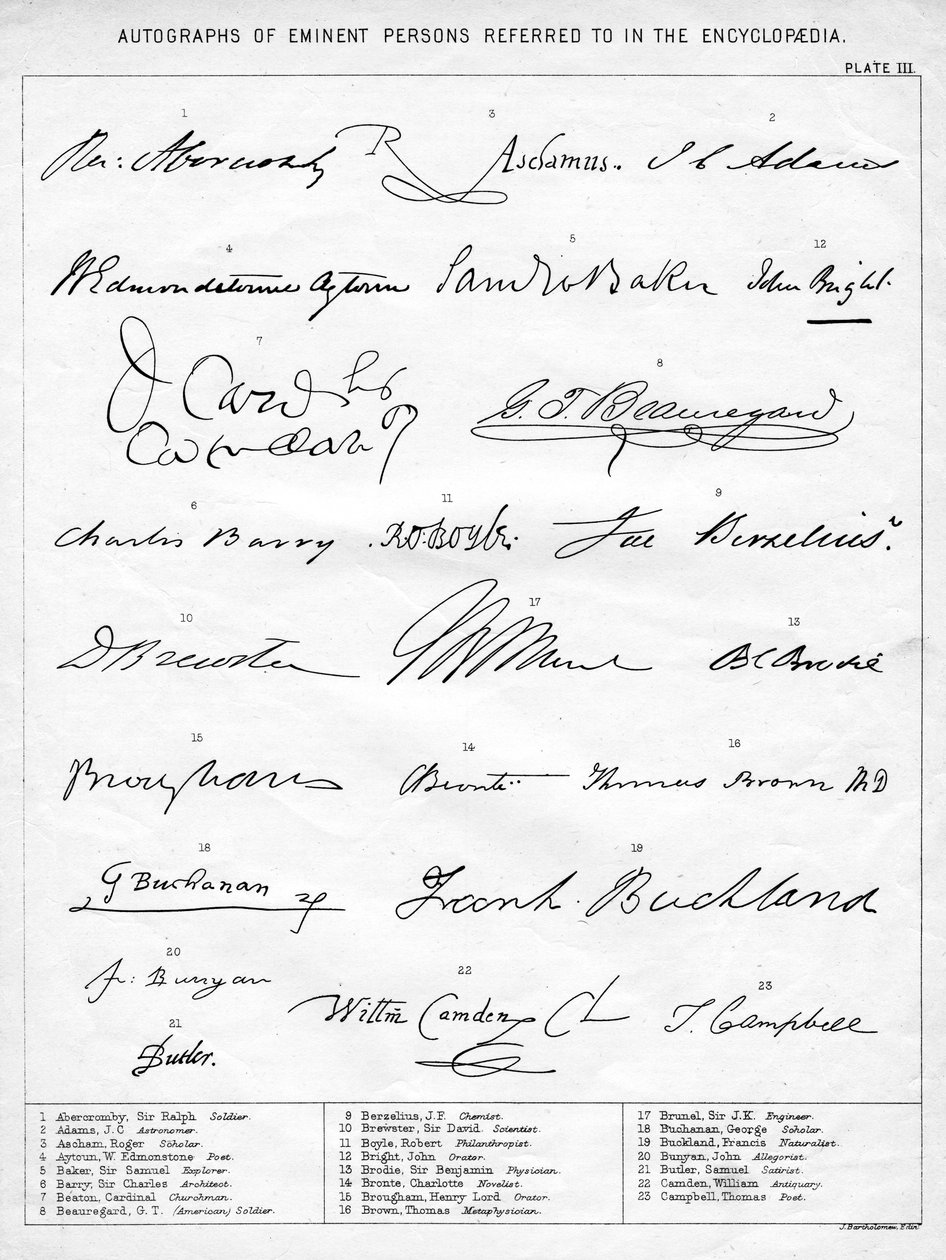 AUTOGRAPHS OF EMINENT PERSONS REFERRED TO IN THE ENCYCLOPÆDIA.
PLATE III.
1 3 2
Ra: Abercromby R Aschamus.. J C Adams
4 5 12
W Edmondstoune Aytoun Sam W Baker John Bright.
7 8
J Card
G. T. Beauregard
6 11 9
Charles Barry RO: BOYLE. Jac Berzelius.
10 17 13
D Brewster B C Brodie
15 14 16
Brougham CBrontë Thomas Brown MD
18 19
G Buchanan Frank Buckland
20 22 23
Jo: Bunyan Willm̄ Camden Cl T. Campbell
21
SButler.
1 Abercromby, Sir Ralph Soldier.
2 Adams, J.C Astronomer.
3 Ascham, Roger Scholar.
4 Aytoun, W. Edmonstone Poet.
5 Baker, Sir Samuel Explorer.
6 Barry, Sir Charles Architect.
7 Beaton, Cardinal Churchman.
8 Beauregard, G. T. (American) Soldier.
9 Berzelius, J.F. Chemist.
10 Brewster, Sir David. Scientist.
11 Boyle, Robert Philanthropist.
12 Bright, John Orator.
13 Brodie, Sir Benjamin Physician.
14 Bronte, Charlotte Novelist.
15 Brougham, Henry Lord Orator.
16 Brown, Thomas Metaphysician.
17 Brunel, Sir J.K. Engineer.
18 Buchanan, George Scholar.
19 Buckland, Francis Naturalist.
20 Bunyan, John Allegorist.
21 Butler, Samuel Satirist.
22 Camden, William Antiquary.
23 Campbell, Thomas Poet.
J. Bartholomew, Edinr